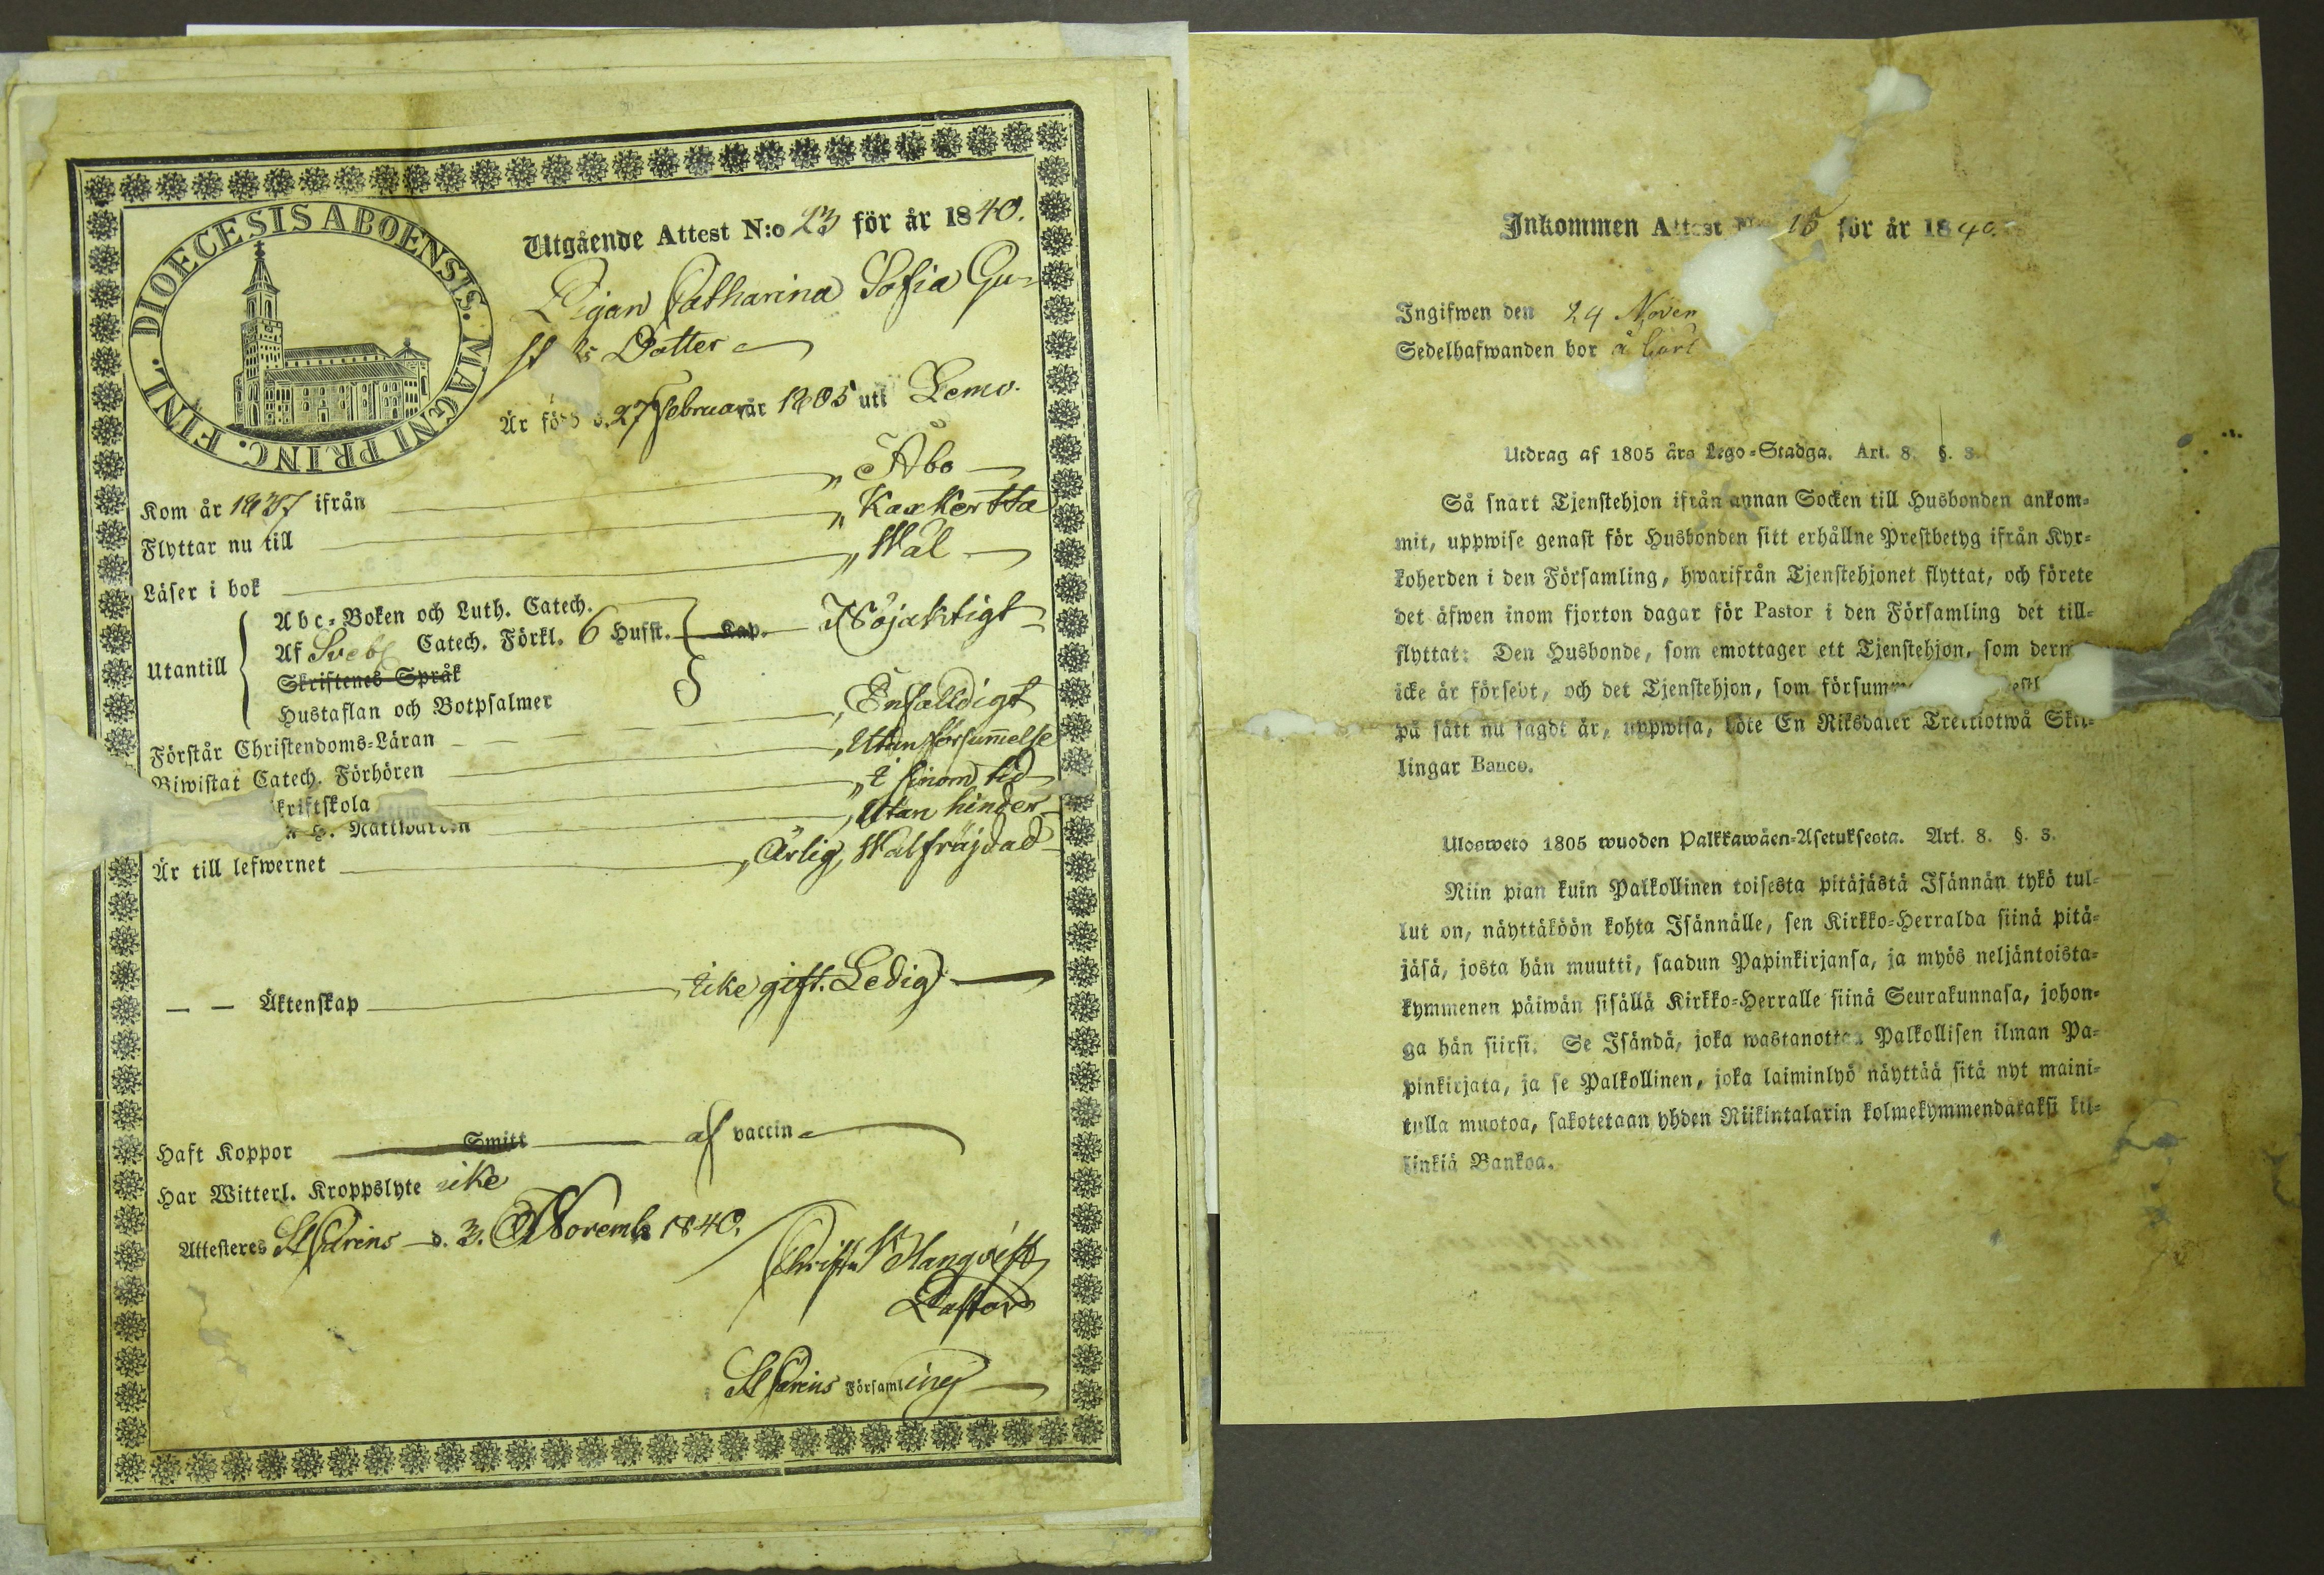 DIOECESIS ABOENSIS. MAGNI PRINC. FINL.
Utgående Attest N:o 23 för år 1840.
Pigan Catharina Sofia Gu-
Dotter
Är född d. 27 Februari år 1805 uti Lemo.
Kom år 1837 ifrån " Åbo
Flyttar nu till " Kaxkertta
Läser i bok " Wäl
Utantill
Abc-Boken och Luth. Catech.
Af Sveb Catech. Förkl. 6 Husst. Kap. Nöjaktigt
Skriftenes Språk
Hustaflan och Botpsalmer
Förstår Christendoms-Läran " Enfalldigt
Biwistat Catech. Förhören " Utan försummelse
kriftskola " i sinom tid
H. Nattwarden " Utan hinder
Är till lefwernet " Ärlig, Wälfräjdad
— — Äktenskap " icke gift. Ledig
Haft Koppor Smitt af vaccin
Har Witterl. Kroppslyte icke
Attesteres St Karins d. 3. Novemb 1840.
Pastor
St Karins Församling
Inkommen Attest N:o 15 för år 1840.
Ingifwen den 24 Novem
Sedelhafwanden bor å
Utdrag af 1805 års Lego-Stadga. Art. 8. §. 3.
Så snart Tjenstehjon ifrån annan Socken till Husbonden ankom-
mit, uppwise genast för Husbonden sitt erhållne Prestbetyg ifrån Kyr-
koherden i den Församling, hwarifrån Tjenstehjonet flyttat, och förete
det äfwen inom fjorton dagar för Pastor i den Församling det till-
flyttat: Den Husbonde, som emottager ett Tjenstehjon, som derm
icke är försedt, och det Tjenstehjon, som försumm
på sätt nu sagdt är, uppwisa, böte En Riksdaler Trettiotwå Skil-
lingar Banco.
Ulosweto 1805 wuoden Palkkawäen-Asetuksesta. Art. 8. §. 3.
Niin pian kuin Palkollinen toisesta pitäjästä Isännän tykö tul-
lut on, näyttäköön kohta Isännälle, sen Kirkko-Herralda siinä pitä-
jäsä, josta hän muutti, saadun Papinkirjansa, ja myös neljäntoista-
kymmenen päiwän sisällä Kirkko-Herralle siinä Seurakunnasa, johon-
ga hän siirsi. Se Isändä, joka wastanottaa Palkollisen ilman Pa-
pinkirjata, ja se Palkollinen, joka laiminlyö näyttää sitä nyt maini-
tulla muotoa, sakotetaan yhden Riikintalarin kolmekymmendäkaksi kil-
linkiä Bankoa.